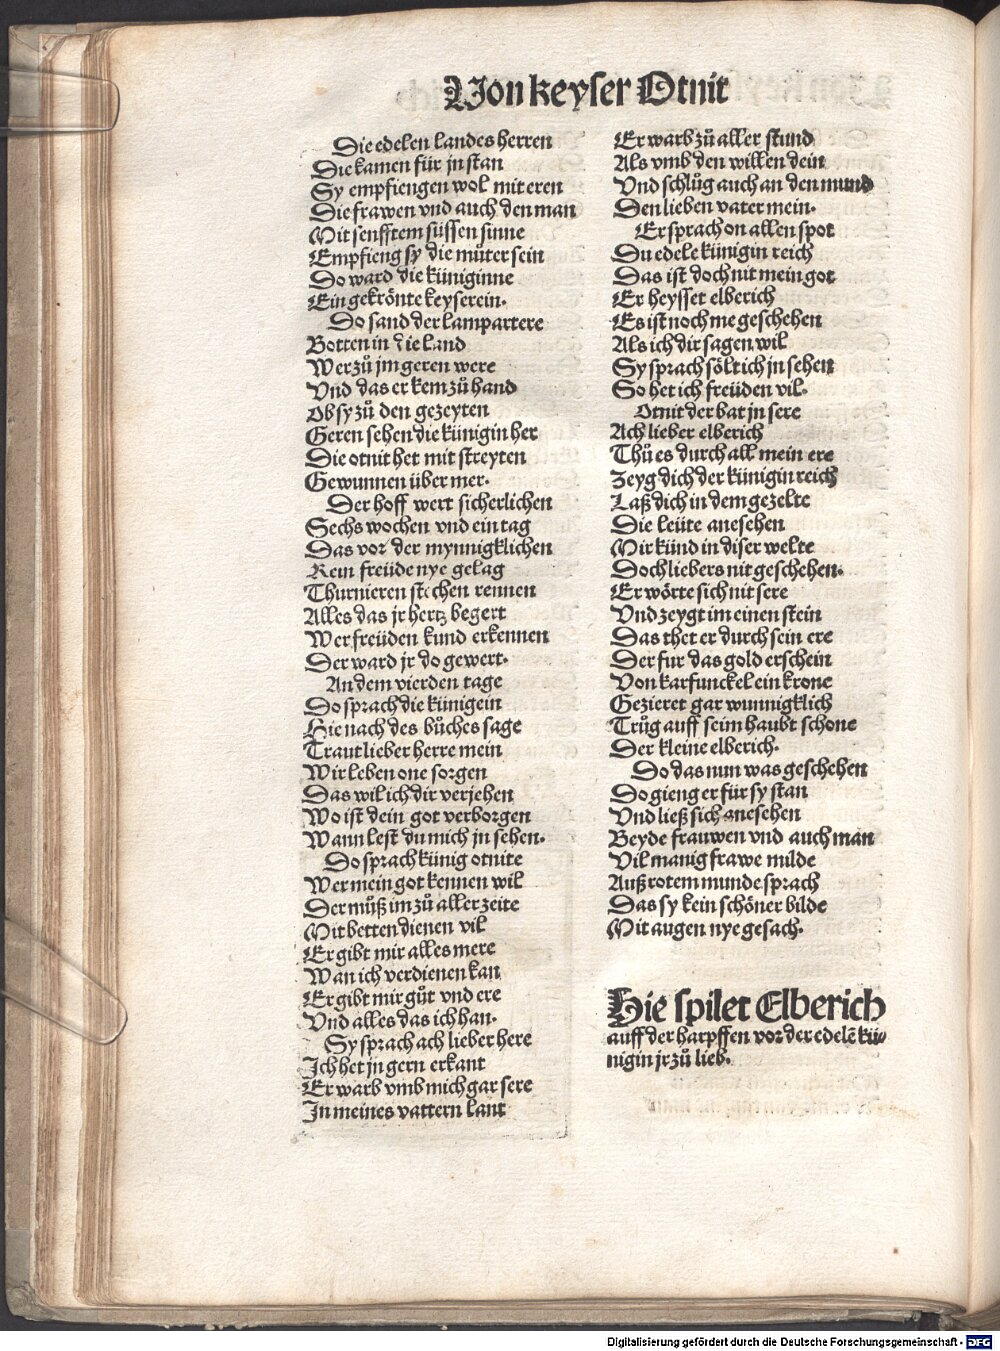 Von keyser Otnit
Die edelen landes herren
Die kamen für jn stan
Sy empfiengen wol mit eren
Die frawen vnd auch den man
Mit senfftem süssen sinne
Empfieng sy die můter sein
Do ward die küniginne
Ein gekrönte keyserein.
Do sand der lampartere
Botten in die land
Wer zů jm geren were
Vnd das er kem zů hand
Ob sy zů den gezeyten
Geren sehen die künigin her
Die otnit het mit streyten
Gewunnen über mer.
Der hoff wert sicherlichen
Sechs wochen vnd ein tag
Das vor der mynnigklichen
Kein freüde nye gelag
Thurnieren stechen rennen
Alles das jr hertz begert
Wer freüden kund erkennen
Der ward jr do gewert.
An dem vierden tage
Do sprach die künigein
Hie nach des bůches sage
Traut lieber herre mein
Wir leben one sorgen
Das wil ich dir verjehen
Wo ist dein got verborgen
Wann lest du mich jn sehen.
Do sprach künig otnite
Wer mein got kennen wil
Der můß im zů aller zeite
Mit betten dienen vil
Er gibt mir alles mere
Wan ich verdienen kan
Er gibt mir gůt vnd ere
Vnd alles das ich han.
Sy sprach ach lieber here
Ich het jn gern erkant
Er warb vmb mich gar sere
In meines vattern lant
Er warb zů aller stund
Als vmb den willen dein
Vnd schlůg auch an den mund
Den lieben vater mein.
Er sprach on allen spot
Du edele künigin reich
Das ist doch nit mein got
Er heysset elberich
Es ist noch me geschehen
Als ich dir sagen wil
Sy sprach sölt ich jn sehen
So het ich freüden vil.
Otnit der bat jn sere
Ach lieber elberich
Thů es durch all mein ere
Zeyg dich der künigin reich
Laß dich in dem gezelte
Die leüte anesehen
Mir künd in diser welte
Doch liebers nit geschehen.
Er wörte sich nit sere
Vnd zeygt im einen stein
Das thet er durch sein ere
Der fur das gold erschein
Von karfunckel ein krone
Gezieret gar wunnigklich
Trůg auff seim haubt schone
Der kleine elberich.
Do das nun was geschehen
Do gieng er für sy stan
Vnd ließ sich anesehen
Beyde frauwen vnd auch man
Vil manig frawe milde
Auß rotem munde sprach
Das sy kein schöner bilde
Mit augen nye gesach.
Hie spilet Elberich
auff der harpffen vor der edelē kü⸗
nigin jr zů lieb.
Digitalisierung gefördert durch die Deutsche Forschungsgemeinschaft - DFG